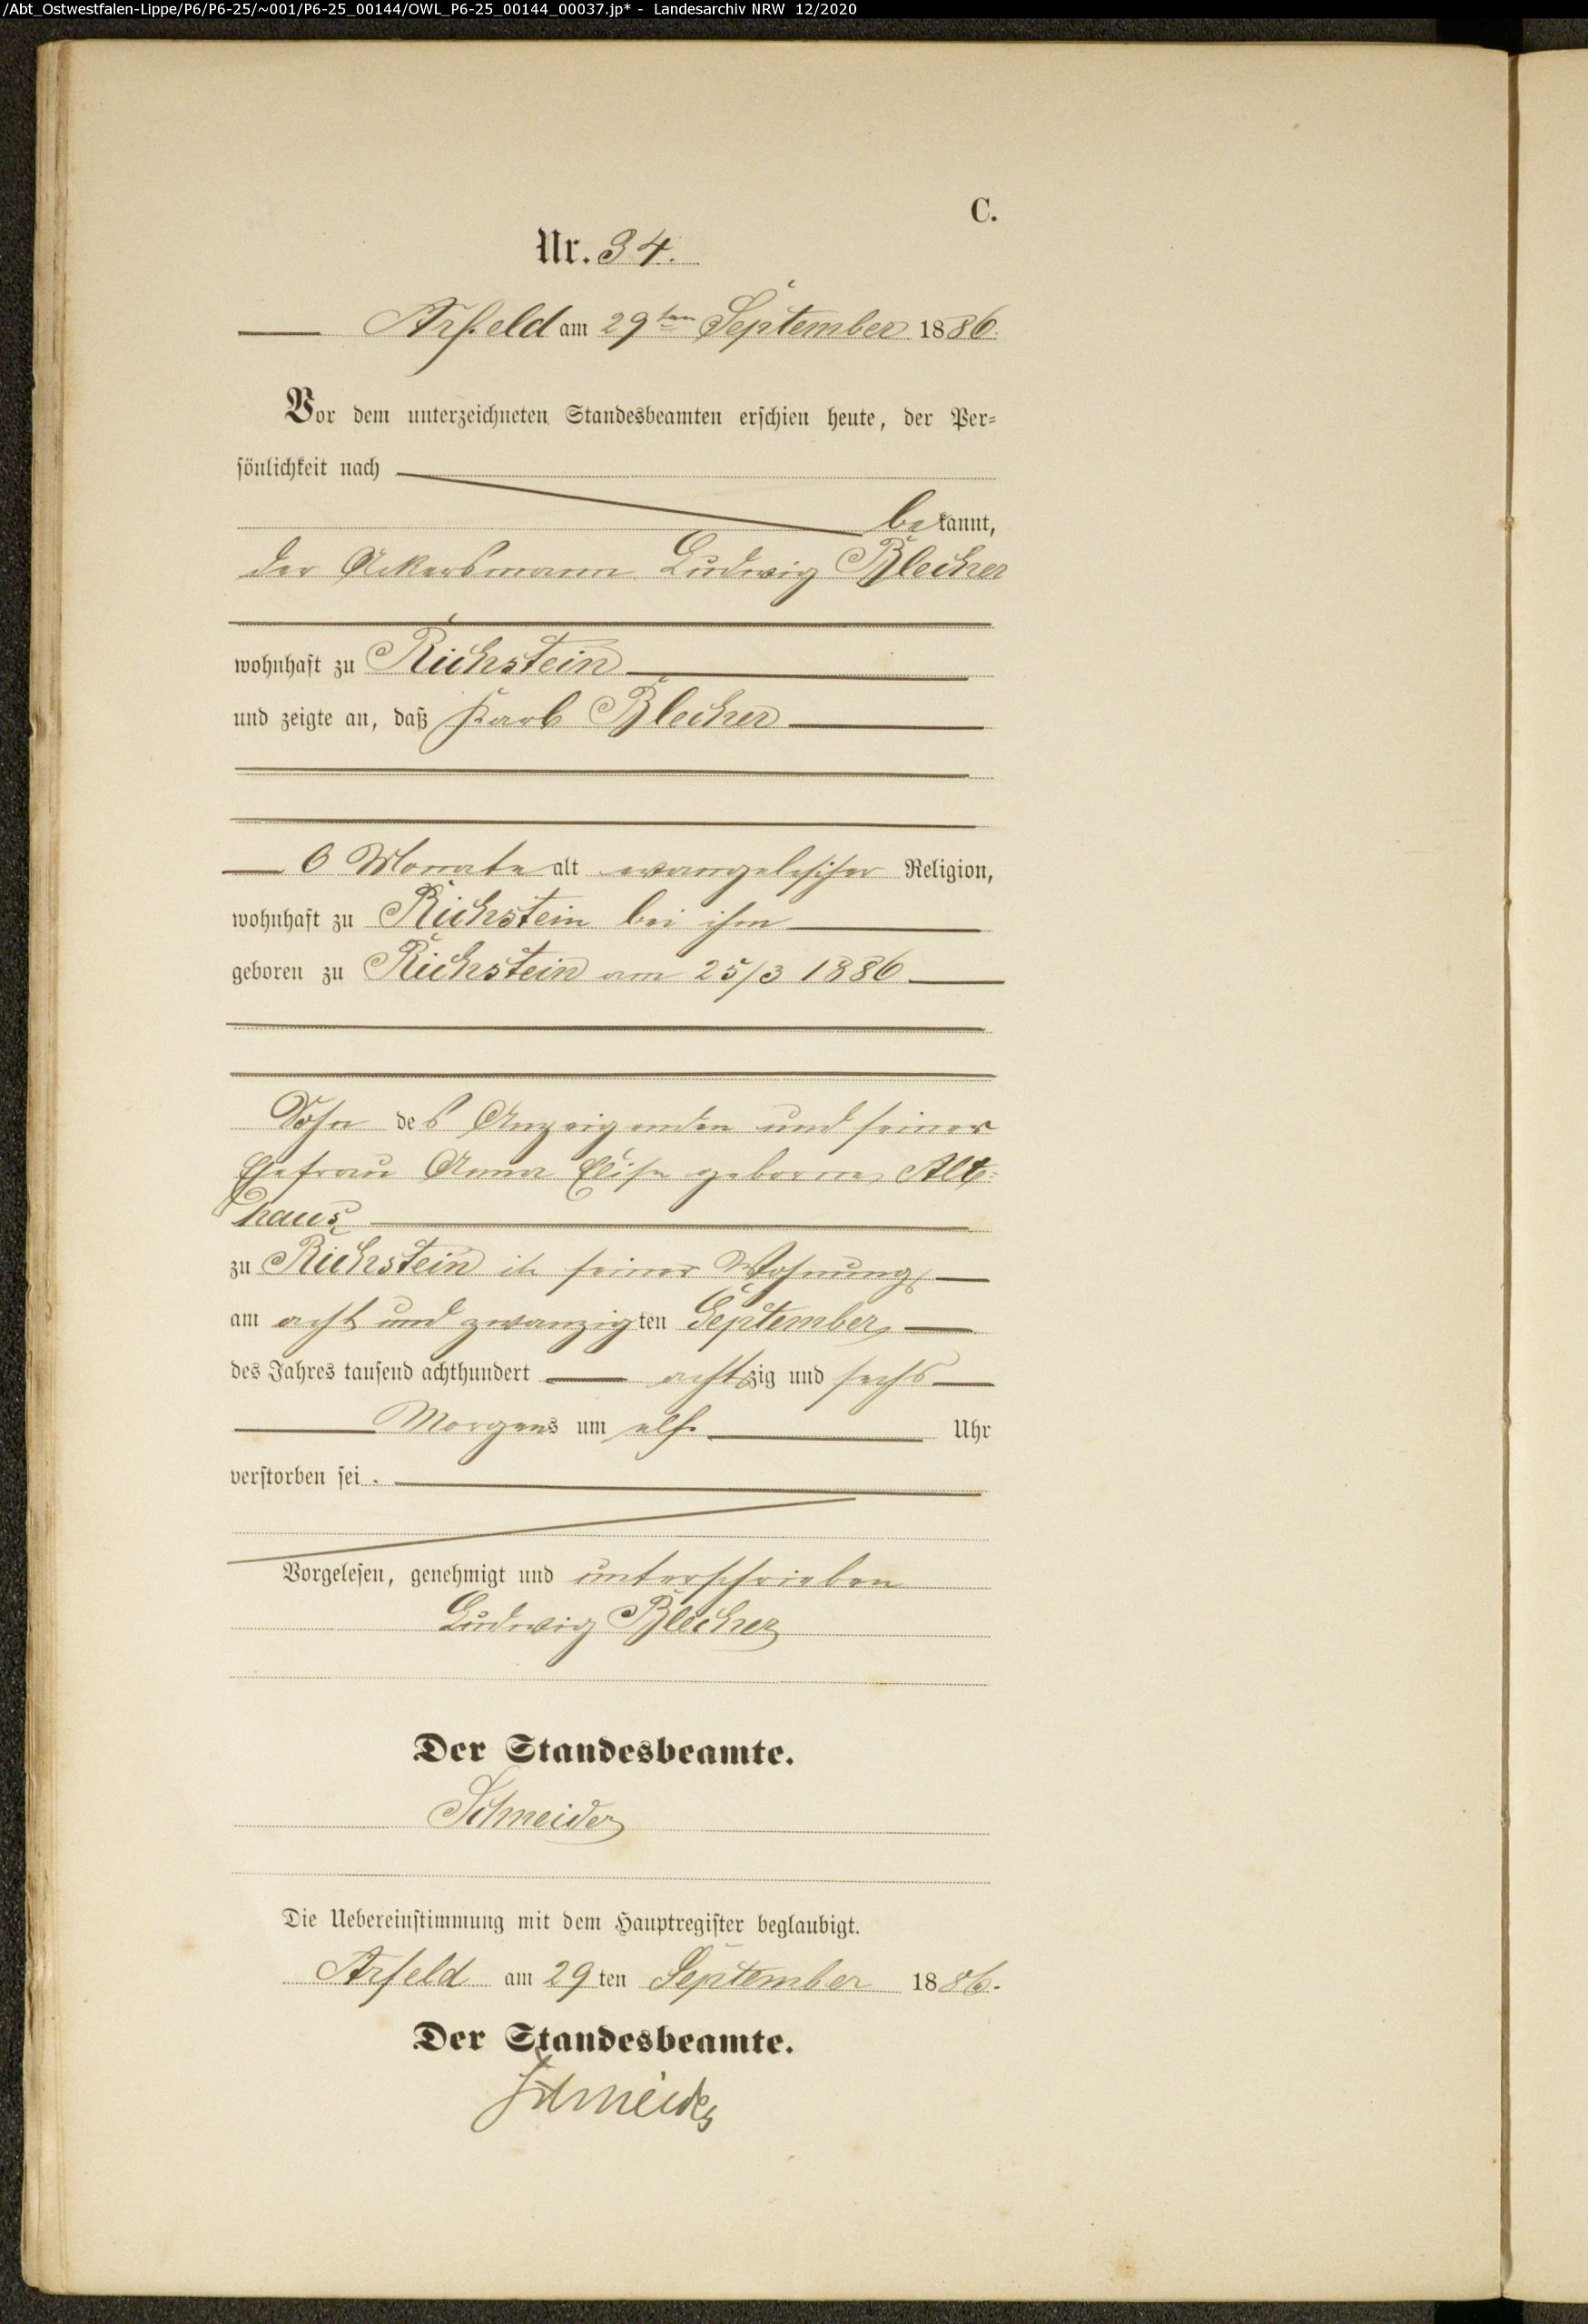 /Abt_Ostwestfalen-Lippe/P6/P6-25/~001/P6-25_00144/OWL_P6-25_00144_00037.jp* - Landesarchiv NRW 12/2020
C.
Nr. 34.
Arfeld am 29ten September 1886.
Vor dem unterzeichneten Standesbeamten erschien heute, der Per=
sönlichkeit nach
bekannt,
der Ackersmann Ludwig Blecher
wohnhaft zu Richstein
und zeigte an, daß Karl Blecher
6 Monate alt evangelischer Religion,
wohnhaft zu Richstein bei ihm
geboren zu Richstein am 25/3 1886
Sohn des Anzeigenden und seiner
Ehefrau Anna Elise geborne Alt-
haus
zu Richstein in seiner Wohnung,
am acht und zwanzigten September,
des Jahres tausend achthundert achtzig und sechs
Morgens um elf Uhr
verstorben sei.
Vorgelesen, genehmigt und unterschrieben
Ludwig Blecher
Der Standesbeamte.
Schneider
Die Uebereinstimmung mit dem Hauptregister beglaubigt.
Arfeld am 29ten September 1886.
Der Standesbeamte.
Schneider